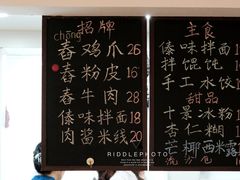 招牌
chōng
舂鸡爪26
舂粉皮16
舂牛肉28
傣味拌面18
肉酱米线20
主食
傣味拌面
拌馄饨
手工水饺
甜品
十景冰粉
杏仁糊
芒椰西米露
RIDDLEPHOTO